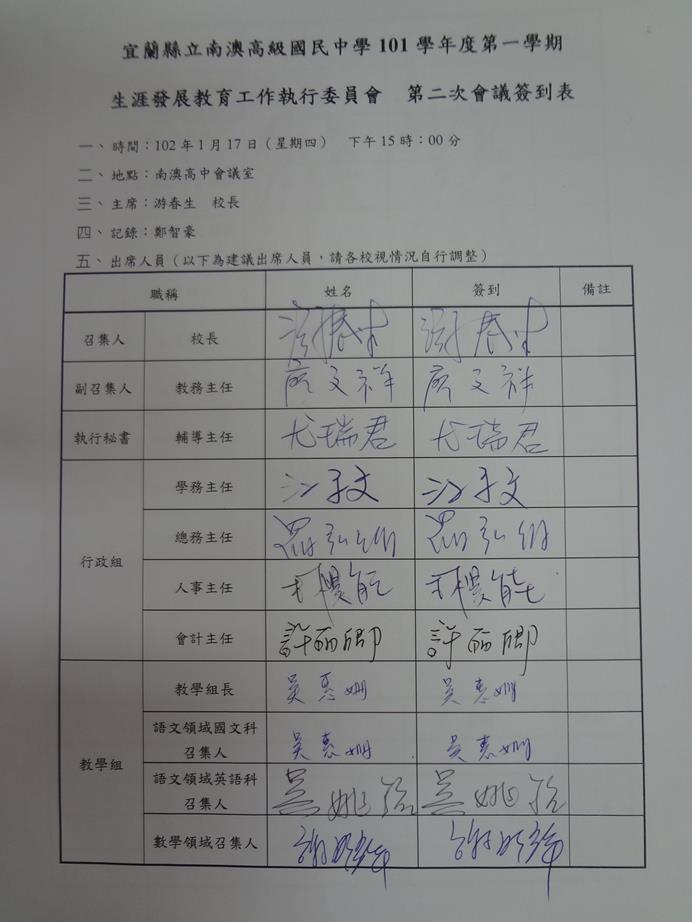 宜蘭縣立南澳高級國民中學 101 學年度第一學期
生涯發展教育工作執行委員會 第二次會議簽到表
一、時間:102 年 1 月 17 日(星期四) 下午 15 時:00 分
二、地點:南澳高中會議室
三、主席:游春生 校長
四、記錄:鄭智豪
五、出席人員(以下為建議出席人員,請各校視情況自行調整)
職稱 姓名 簽到 備註
召集人 校長 游春生 游春生
副召集人 教務主任 文祥 文祥
執行秘書 輔導主任 尤瑞君 尤瑞君
行政組
學務主任 江文 江文
總務主任
人事主任
會計主任 許丽卿 許丽卿
教學組
教學組長 吳惠姍 吳惠姍
語文領域國文科
召集人 吳惠姍 吳惠姍
語文領域英語科
召集人 吳姚 吳姚
數學領域召集人 謝 謝